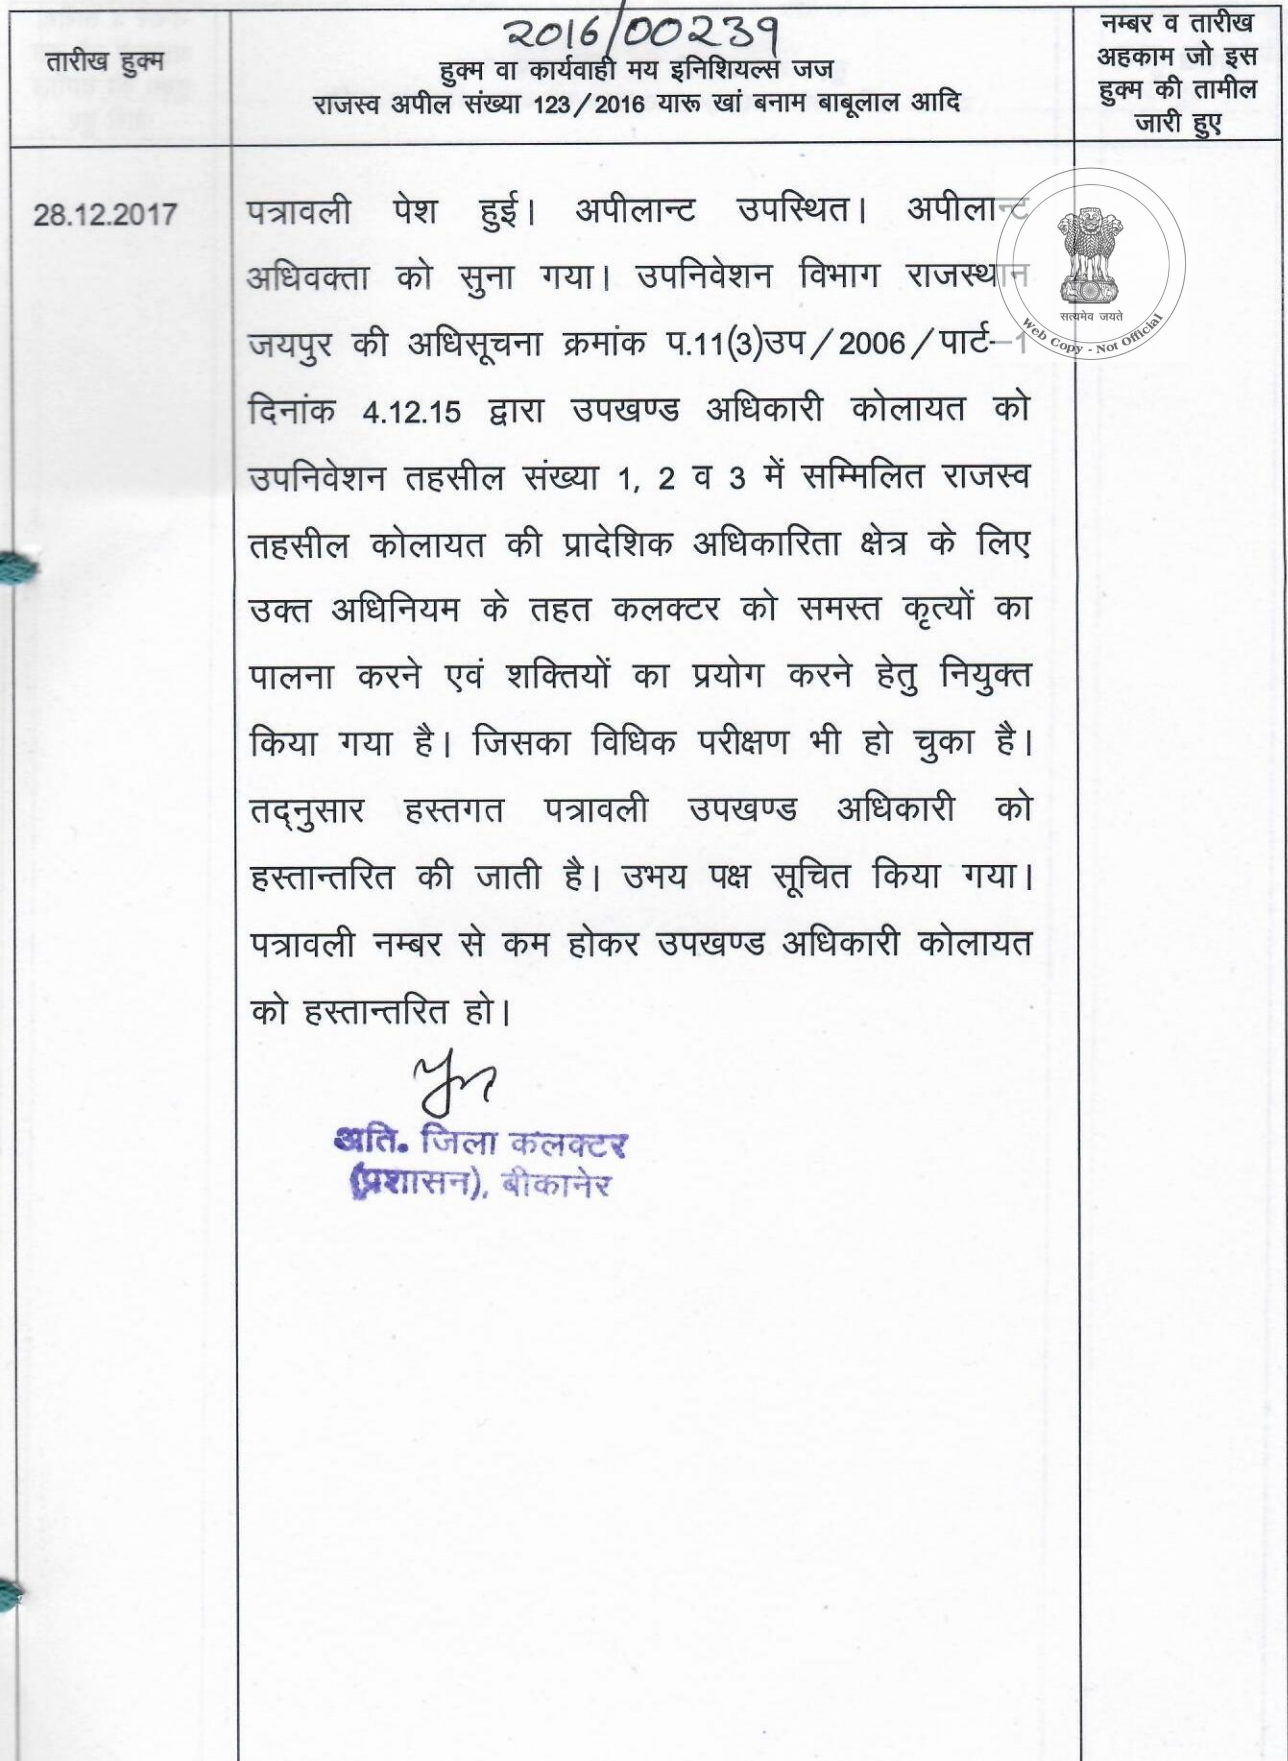 2016/00239
तारीख हुक्म
हुक्म वा कार्यवाही मय इनिशियल्स जज
राजस्व अपील संख्या 123/2016 यारू खां बनाम बाबूलाल आदि
नम्बर व तारीख
अहकाम जो इस
हुक्म की तामील
जारी हुए
28.12.2017
पत्रावली पेश हुई। अपीलान्ट उपस्थित। अपीलान्ट
अधिवक्ता को सुना गया। उपनिवेशन विभाग राजस्थान
जयपुर की अधिसूचना क्रमांक प.11(3)उप/2006/पार्ट-1
दिनांक 4.12.15 द्वारा उपखण्ड अधिकारी कोलायत को
उपनिवेशन तहसील संख्या 1, 2 व 3 में सम्मिलित राजस्व
तहसील कोलायत की प्रादेशिक अधिकारिता क्षेत्र के लिए
उक्त अधिनियम के तहत कलक्टर को समस्त कृत्यों का
पालना करने एवं शक्तियों का प्रयोग करने हेतु नियुक्त
किया गया है। जिसका विधिक परीक्षण भी हो चुका है।
तद्नुसार हस्तगत पत्रावली उपखण्ड अधिकारी को
हस्तान्तरित की जाती है। उभय पक्ष सूचित किया गया।
पत्रावली नम्बर से कम होकर उपखण्ड अधिकारी कोलायत
को हस्तान्तरित हो।
अति. जिला कलक्टर
(प्रशासन), बीकानेर
सत्यमेव जयते
Web Copy - Not Official